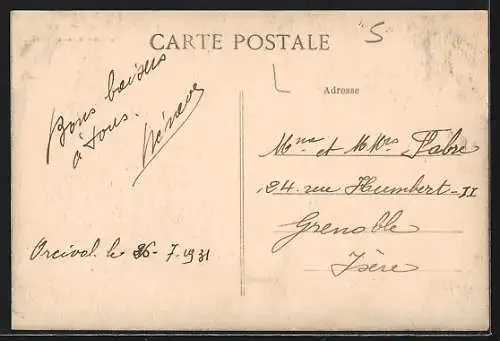 CARTE POSTALE
S
L
Adresse
Bons baisers
à tous.
Orcival le 26-7-1931
Mme et M Mrs Fabre
24 rue Humbert-II
Grenoble
Isère